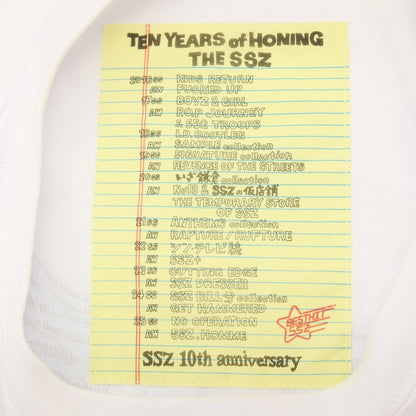 TEN YEARS of HONING
THE SSZ
2016SS KIDS RETURN
AW FUCKED UP
17SS BOYZ & GIRL
AW P.O.P JOURNEY
& 552 TROOPS
18SS I.D. BOOTLEG
AW SAMPLE collection
19SS SIGNATURE collection
AW REVENGE OF THE STREETS
20SS いざ鎌倉 collection
AW No18 & SSZの仮店舗
THE TEMPORARY STORE
OF SSZ
21SS ANTHEMS collection
AW RAPTURE/RUPTURE
22SS シン・テレビ装
AW SSZ+
23SS CUTTING EDGE
AW SSZ DRESSER
24SS SSZ BILL分 collection
AW GET HAMMERED
25SS NO OPERATION
AW SSZ.HOMME
BEST HIT
SSZ
SSZ 10th anniversary